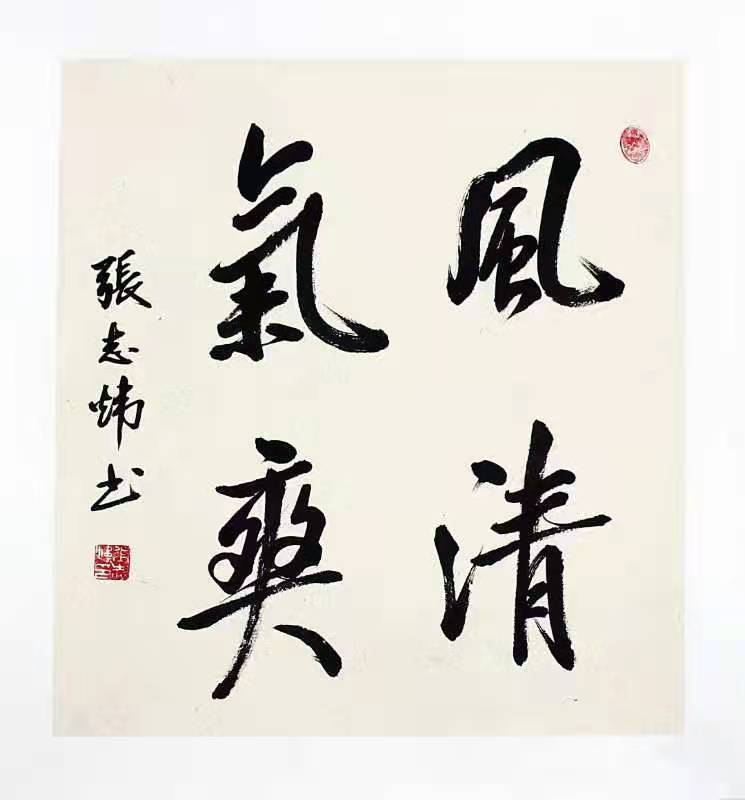 風清
氣爽
張志煒书